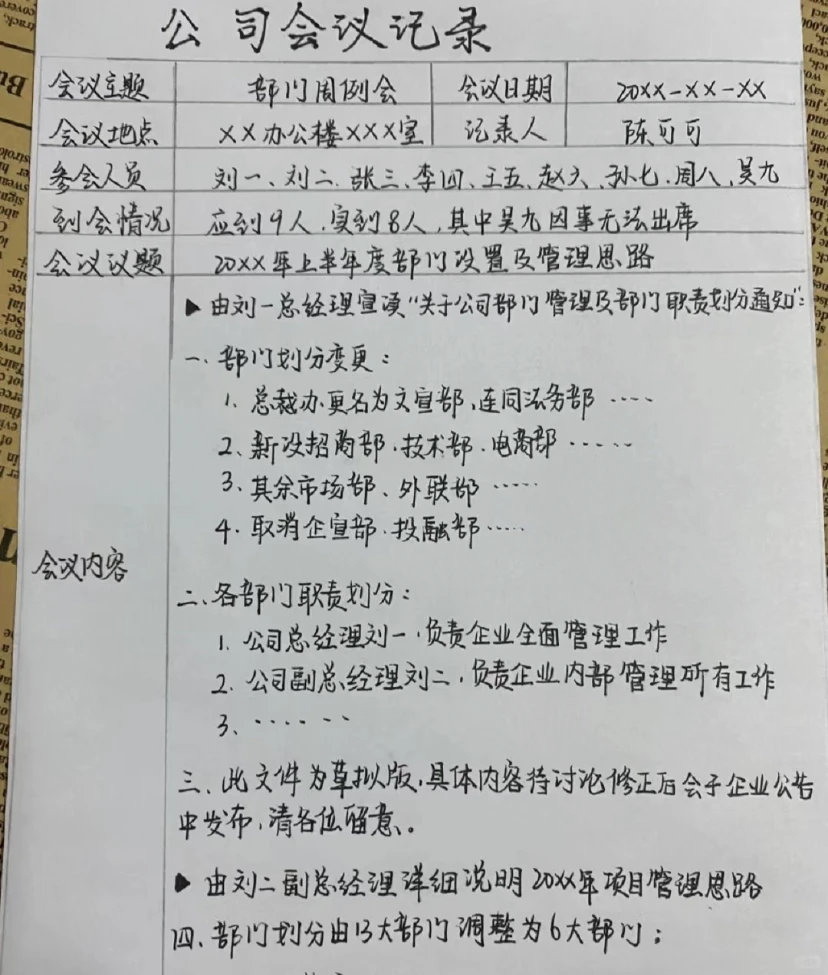 公司会议记录
会议主题 部门周例会 会议日期 20XX-XX-XX
会议地点 XX办公楼XXX室 记录人 陈可可
参会人员 刘一、刘二、张三、李四、王五、赵六、孙七、周八、吴九
到会情况 应到9人,实到8人,其中吴九因事无法出席
会议议题 20XX年上半年度部门设置及管理思路
▶由刘一总经理宣读“关于公司部门管理及部门职责划分通知”:
一、部门划分变更:
1、总裁办更名为文宣部、连同法务部 ····
2、新设招商部、技术部、电商部 ·····
3、其余市场部、外联部 ·····
4、取消企宣部、投融部·····
会议内容
二、各部门职责划分:
1. 公司总经理刘一,负责企业全面管理工作
2. 公司副总经理刘二,负责企业内部管理所有工作
3. ······
三、此文件为草拟版,具体内容待讨论修正后会于企业公告
中发布,请各位留意。
▶由刘二副总经理详细说明20XX年项目管理思路
四、部门划分由13大部门调整为6大部门;